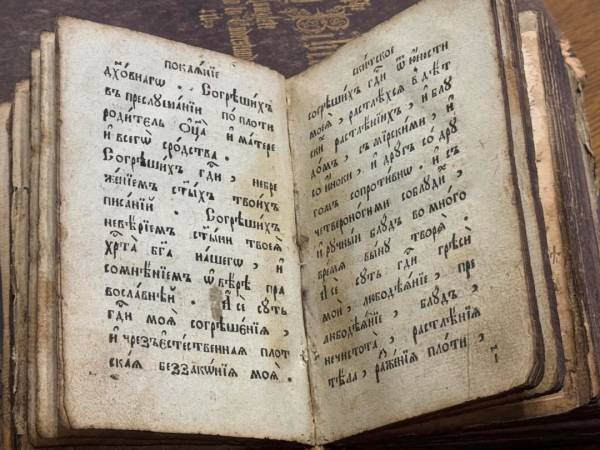 ПОКАѦ́НЇЕ
дх҃о́внагѡ . Согрѣши́хъ
въ преслꙋша́нїи по пло́ти
роди́тель ѻ҆ц҃а̀ и҆ ма́тере
и҆ всегѡ̀ сро́дства .
Согрѣши́хъ гд҇и , небре
же́нїемъ ст҃ы́хъ твои́хъ
писа́нїй . Согрѣши́хъ
невѣ́рїемъ ст҃ы́ни твоеѧ̀
хр҇та̀ бг҃а на́шегѡ , и҆
сомнѣ́нїемъ ѡ҆ вѣ́рѣ пра
восла́внѣй . И҆ сѐ сꙋ́ть
гд҇и моѧ̀ согрѣше́нїѧ ,
и҆ чрез̾есте́ственнаѧ плот
ска́ѧ беззако́нїѧ моѧ̀ .
СКИ́ТСКОЕ
согрѣши́хъ гд҇и ѿ ю҆́ности
моеѧ̀ , растле́хсѧ в дѣ́т
ски растлѣ́нїихъ , и҆ блꙋ
до́мъ , съ мирски́ми , и҆
со и҆́ноки , и҆ дрꙋ́гъ со дрꙋ
го́мъ сопроти́внѡ . и҆ съ
четвероно́гими соблꙋди́хъ ,
и҆ рꙋ́чный блꙋ́дъ во мно́го
вре́мѧ вы́нꙋ творѧ̀ .
И҆ сѐ сꙋ́ть гд҇и грѣсѝ
моѝ , любодѣѧ́нїе , пре
любодѣѧ́нїе , блꙋ́дъ ,
нечистота̀ , растлѣ́нїѧ
тѣ́ла , раже́нїѧ пло́ти ,